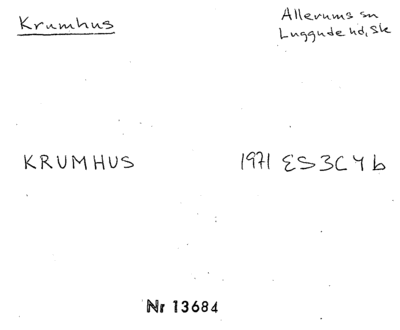 Krumhus
Allerums sn
Luggude hd, Sk
KRUMHUS
1971 ES 3C 4 b
Nr 13684